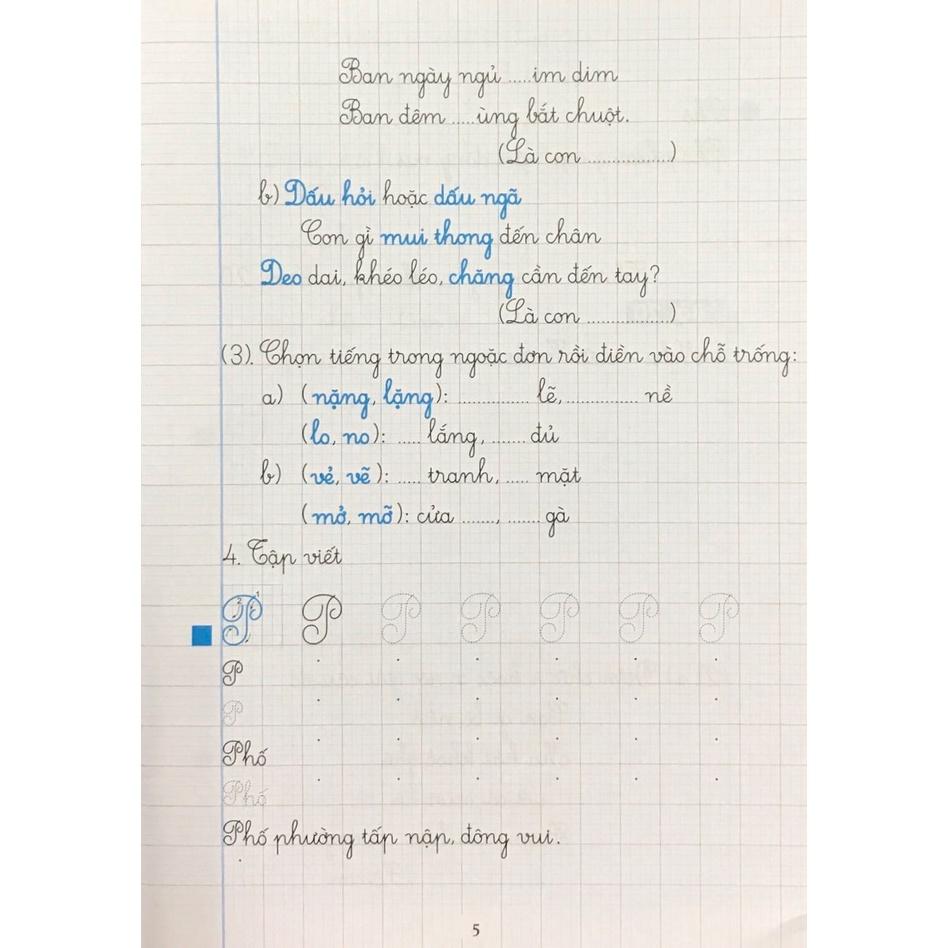 Ban ngày ngủ .....im dim
Ban đêm .....ùng bắt chuột.
(Là con ................)
b) Dấu hỏi hoặc dấu ngã
Con gì mui thong đến chân
Deo dai, khéo léo, chăng cần đến tay?
(Là con ................)
(3). Chọn tiếng trong ngoặc đơn rồi điền vào chỗ trống:
a) (nặng, lặng): .............. lẽ, .............. nề
(lo, no): ..... lắng, ....... đủ
b) (vẻ, vẽ): ..... tranh, ..... mặt
(mở, mỡ): cửa ......., ....... gà
4. Tập viết
P P P P P P P
P
P
Phố
Phố
Phố phường tấp nập, đông vui.
5